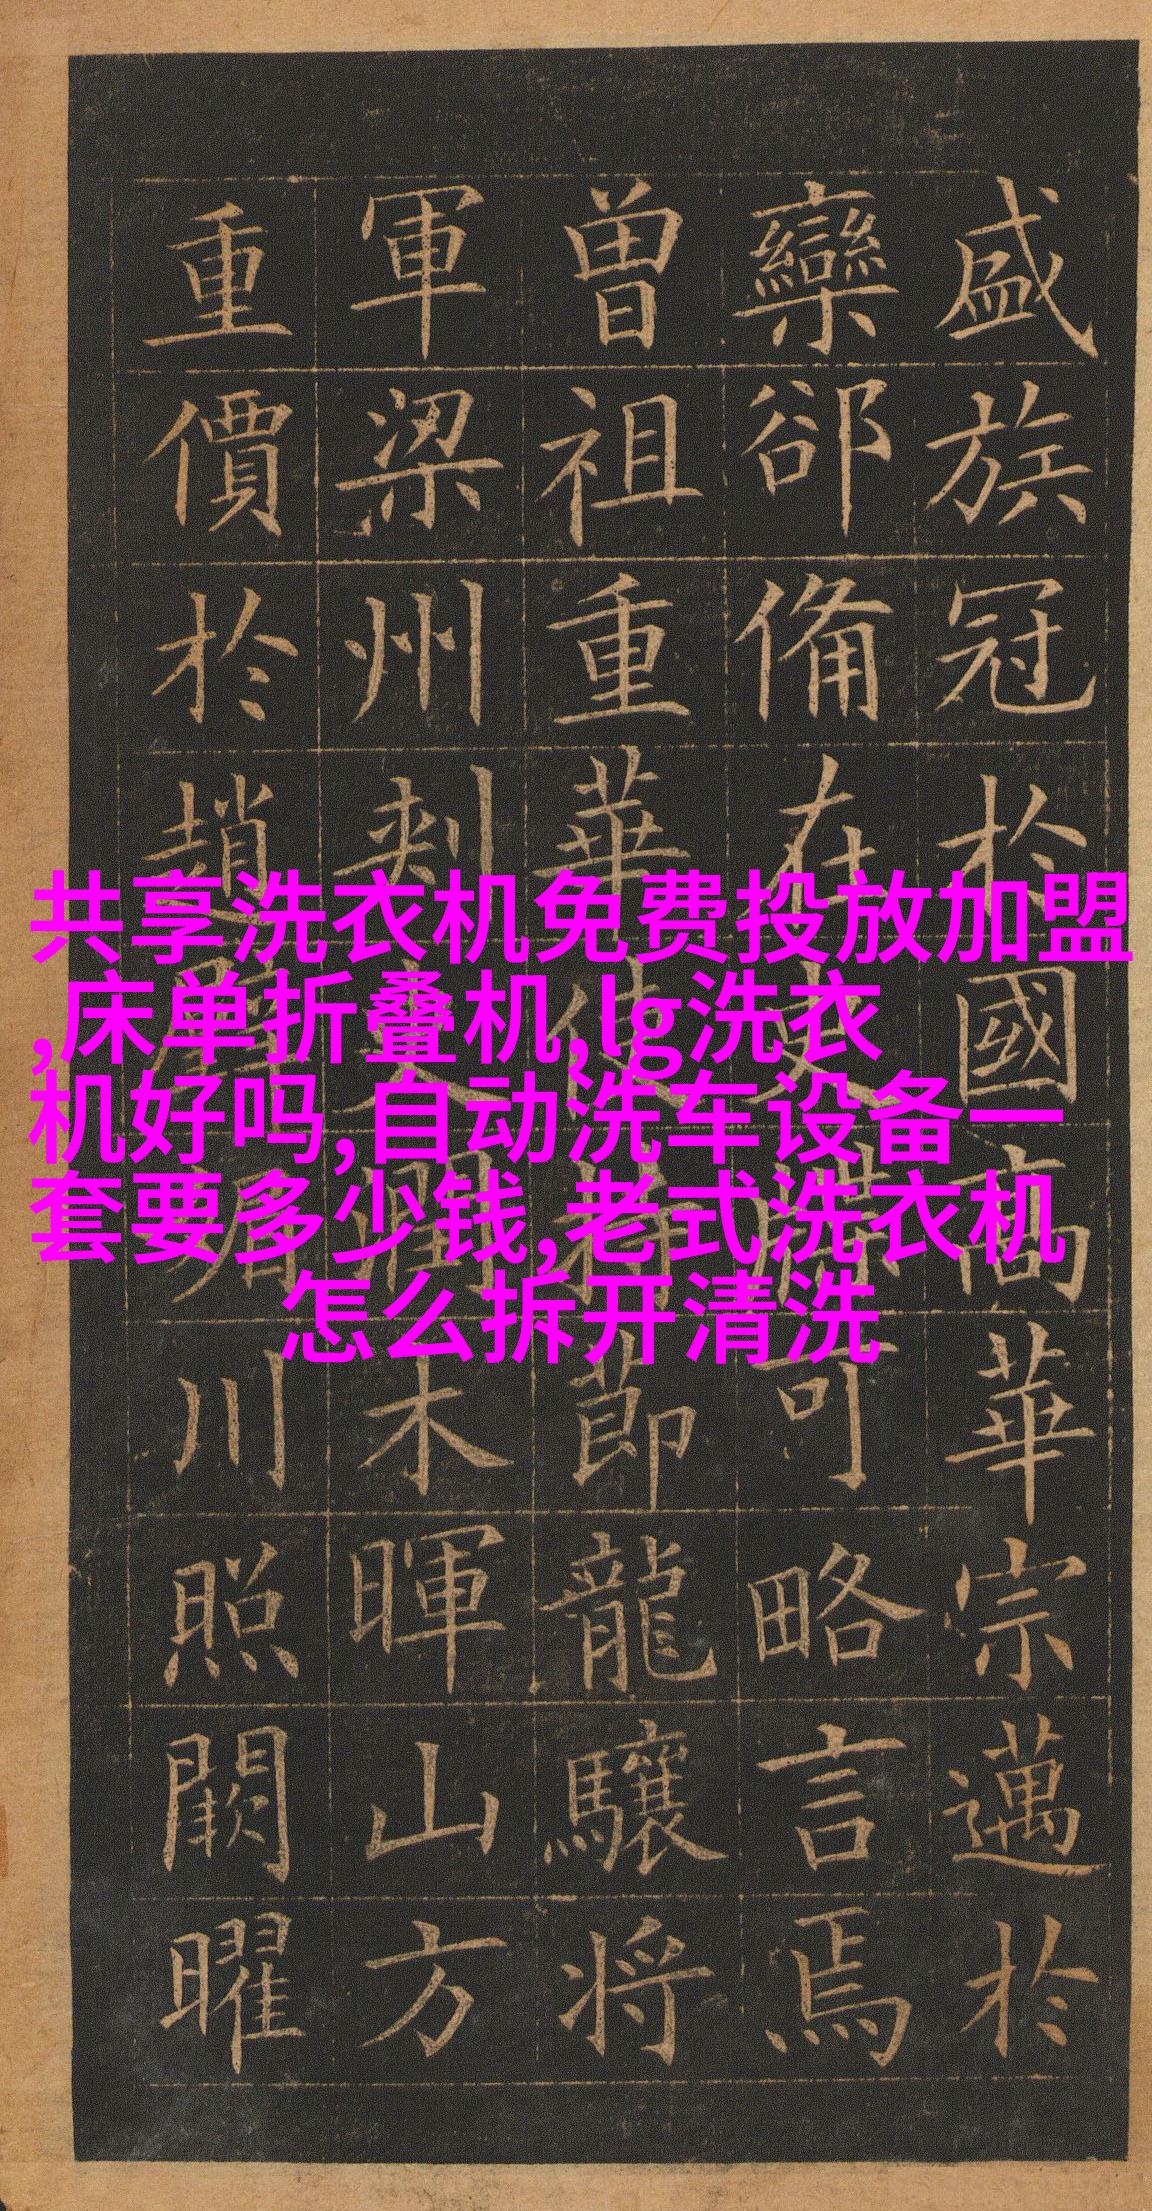 盛族冠於國高華宗邁於
欒郤備在史牒可略言焉
曾祖重華使持節龍驤將
軍梁州刺史潤木暉山方
重價於趙璧媚川照闕曜
共享洗衣机免费投放加盟
,床单折叠机,lg洗衣
机好吗,自动洗车设备一
套要多少钱,老式洗衣机
怎么拆开清洗